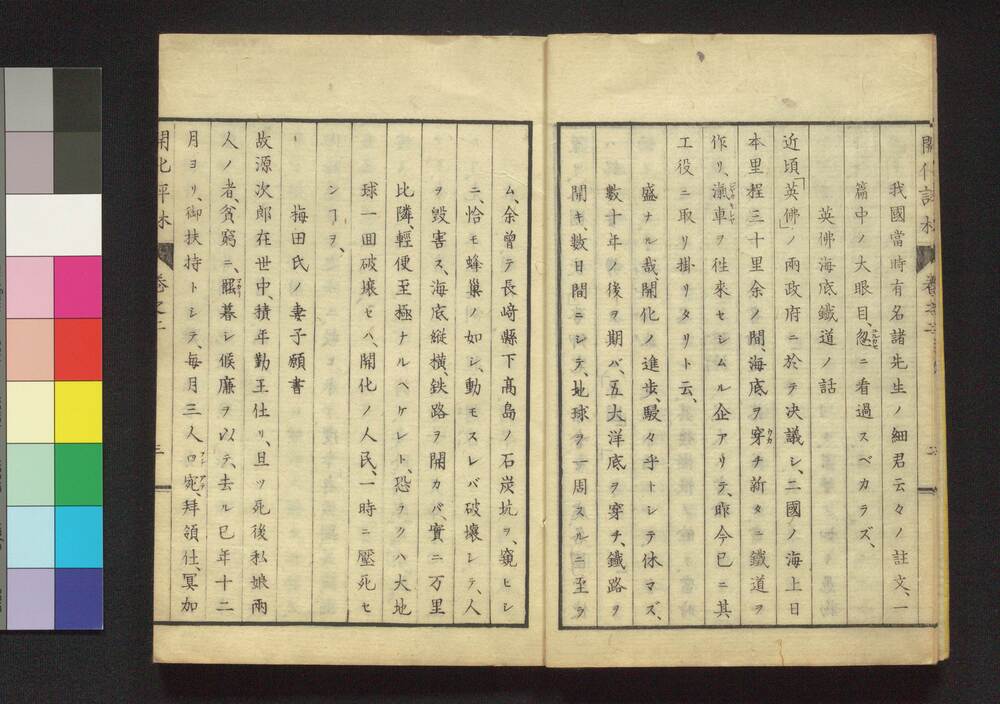 我國當時有名諸先生ノ細君云々ノ註文、一
篇中ノ大眼目、忽ニ看過スベカラズ、
英佛海底鐵道ノ話
近頃「英佛」ノ兩政府ニ於テ决議シ、二國ノ海上日
本里程三十里余ノ間、海底ヲ穿チ新タニ鐵道ヲ
作リ、滊車ヲ徃來セシムル企アリテ、昨今已ニ其
工役ニ取リ掛リタリト云、
盛ナル哉、開化ノ進歩、駸々乎トシテ休マズ、
數十年ノ後ヲ期バ、五大洋底ヲ穿チ、鐵路ヲ
開キ、數日間ニシテ、地球ヲ一周スルニ至ラ
ム、余曾テ長﨑縣下高島ノ石炭坑ヲ、窺ヒシ
ニ、恰モ蜂巢ノ如シ、動モスレバ破壞シテ、人
ヲ毀害ス、海底縱橫、鉄路ヲ開カバ、實ニ万里
比隣、輕便至極ナルベケレト、恐ラクハ大地
球一囬破壞セハ、開化ノ人民、一時ニ壓死セ
ンヿヲ、
梅田氏ノ妻子願書
故源次郎在世中、積年勤王仕リ、且ッ死後私娘兩
人ノ者、貧窮ニ、罷暮シ候廉ヲ以テ、去ル巳年十二
月ヨリ、御扶持トシテ、每月三人口宛、拜領仕、冥加
開化評林
卷之二
三